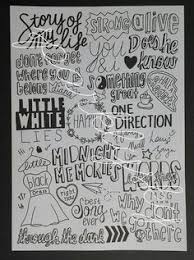 Story of my life
STRONG alive
you & I
Does he know
don't forget where you belong
something great
LITTLE WHITE LIES
HAPPILY
ONE DIRECTION
MIDNIGHT MEMORIES
little black dress
right now
best song ever
why don't we go there
through the dark